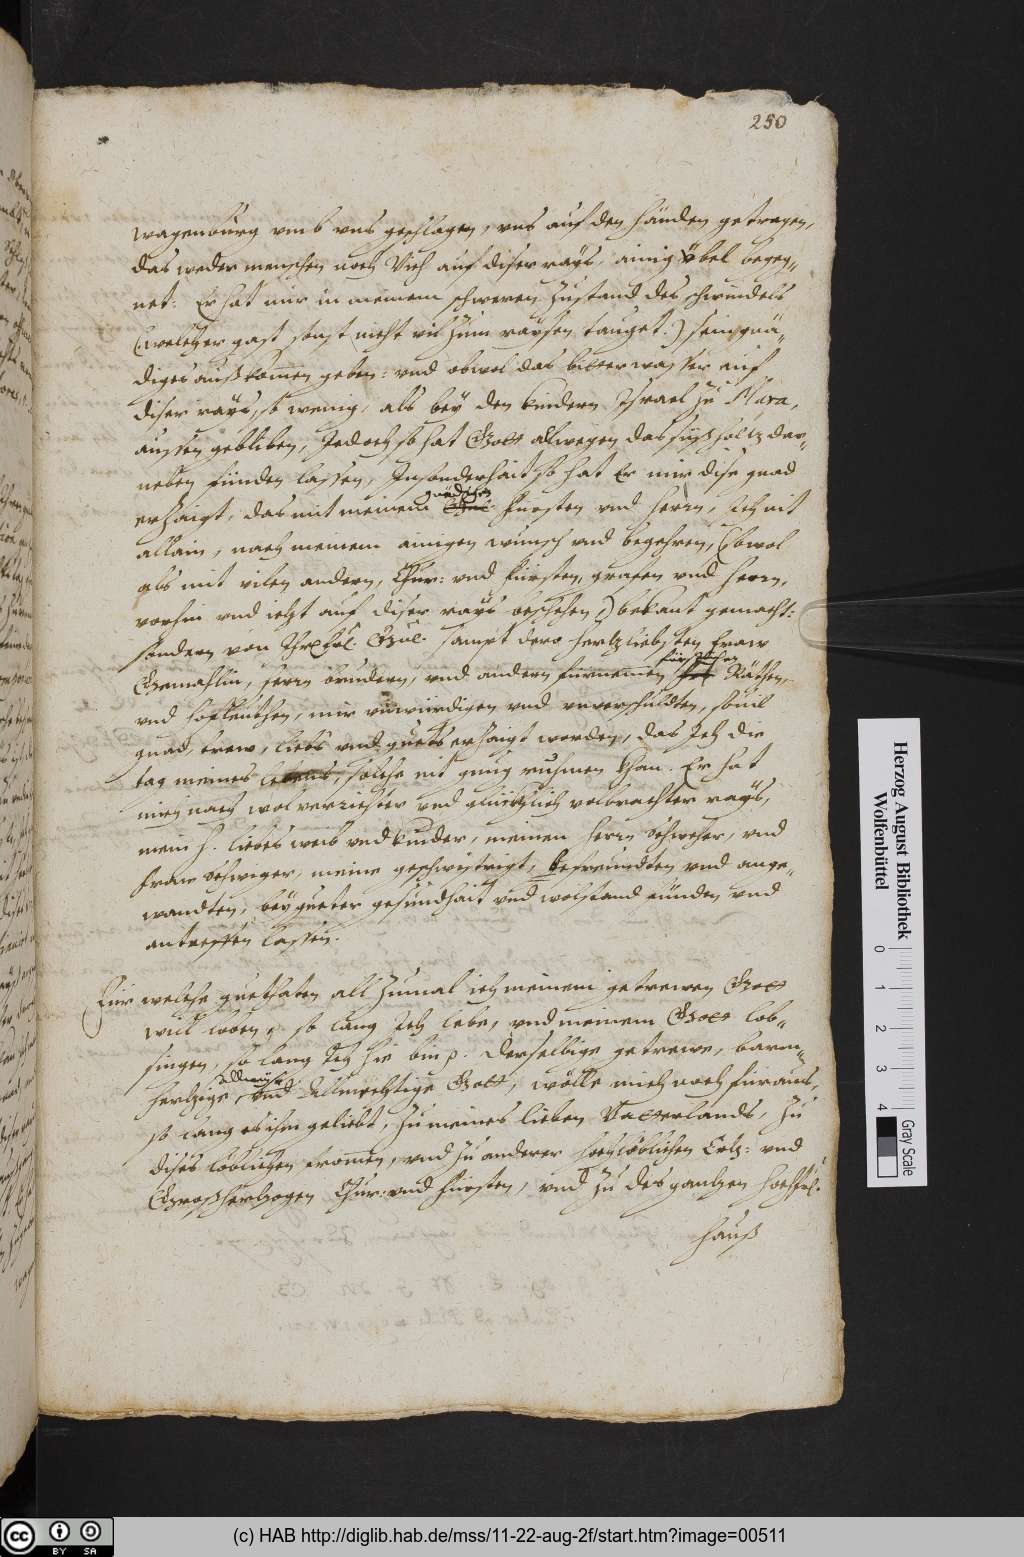 250
wagenburg vmb vns geschlagen, vns auf den händen getragen,
das weder menschen noch Vich auf diser rays, ainig vbel begeg-
net: Er hat mir in meinem schweren Zustand des schwindels
(welcher gast sonst nicht vil zum raysen tauget:) sein gnä-
diges außkomen geben: vnd obwol das bitterwasser auf
diser rays, so wenig, als bey den kindern Israel zu Mara,
aussen gebliben, Jedoch so hat Gott allwegen das süßholtz dar-
neben finden lassen, Insonderhait so hat Er mir dise gnad
erzaigt, das mit meinem gnädigen Fürsten vnd Herrn, Ich nit
allain, nach meinem ainigen wunsch vnd begehren, (obwol
als mit vilen andern, Chur: vnd Fürsten, grafen vnd Herrn,
vorhin vnd ietzt auf diser rays beschehen,) bekant gemacht:
sondern von Ihr Fürl. Gnl. sampt dero hertzliebsten Fraw
Gemahlin, Herrn brüdern, vnd andern fürnemen fürstlichen Räthen,
vnd hofleuthen, mir vnwürdigen vnd vnverschuldten, souil
gnad, trew, liebs vnd guets erzaigt worden, das Ich die
tag meines lebens, solche nit gnug rühmen khan. Er hat
mich nach wol verrichter vnd glücklich volbrachter rays,
mein h. liebes weib vnd kinder, meinen Herrn Schweher, vnd
Fraw Schwiger, meine geschwistrigt, befreundten vnd ange-
wandten, bey gueter gesundhait vnd wolstand finden vnd
antreffen lassen.
Für welche guetthaten all zumal ich meinem getrewen Gott
will loben, so lang Ich lebe, vnd meinem Gott lob-
singen, so lang Ich hie bin p. Derselbige getrewe, barm-
hertzige, vnd Allmechtige Gott, wölle mich noch fürauß,
so lang es ihm geliebt, zu meines lieben Vatterlands, zu
dises löblichen fromen, vnd zu anderer hochlöblichen Ertz: vnd
Großhertzogen Chur: vnd Fürsten, vnd zu des gantzen hochfürl.
Hauß
Herzog August Bibliothek
Wolfenbüttel
0 1 2 3 4
Gray Scale
cc BY SA
(c) HAB http://diglib.hab.de/mss/11-22-aug-2f/start.htm?image=00511